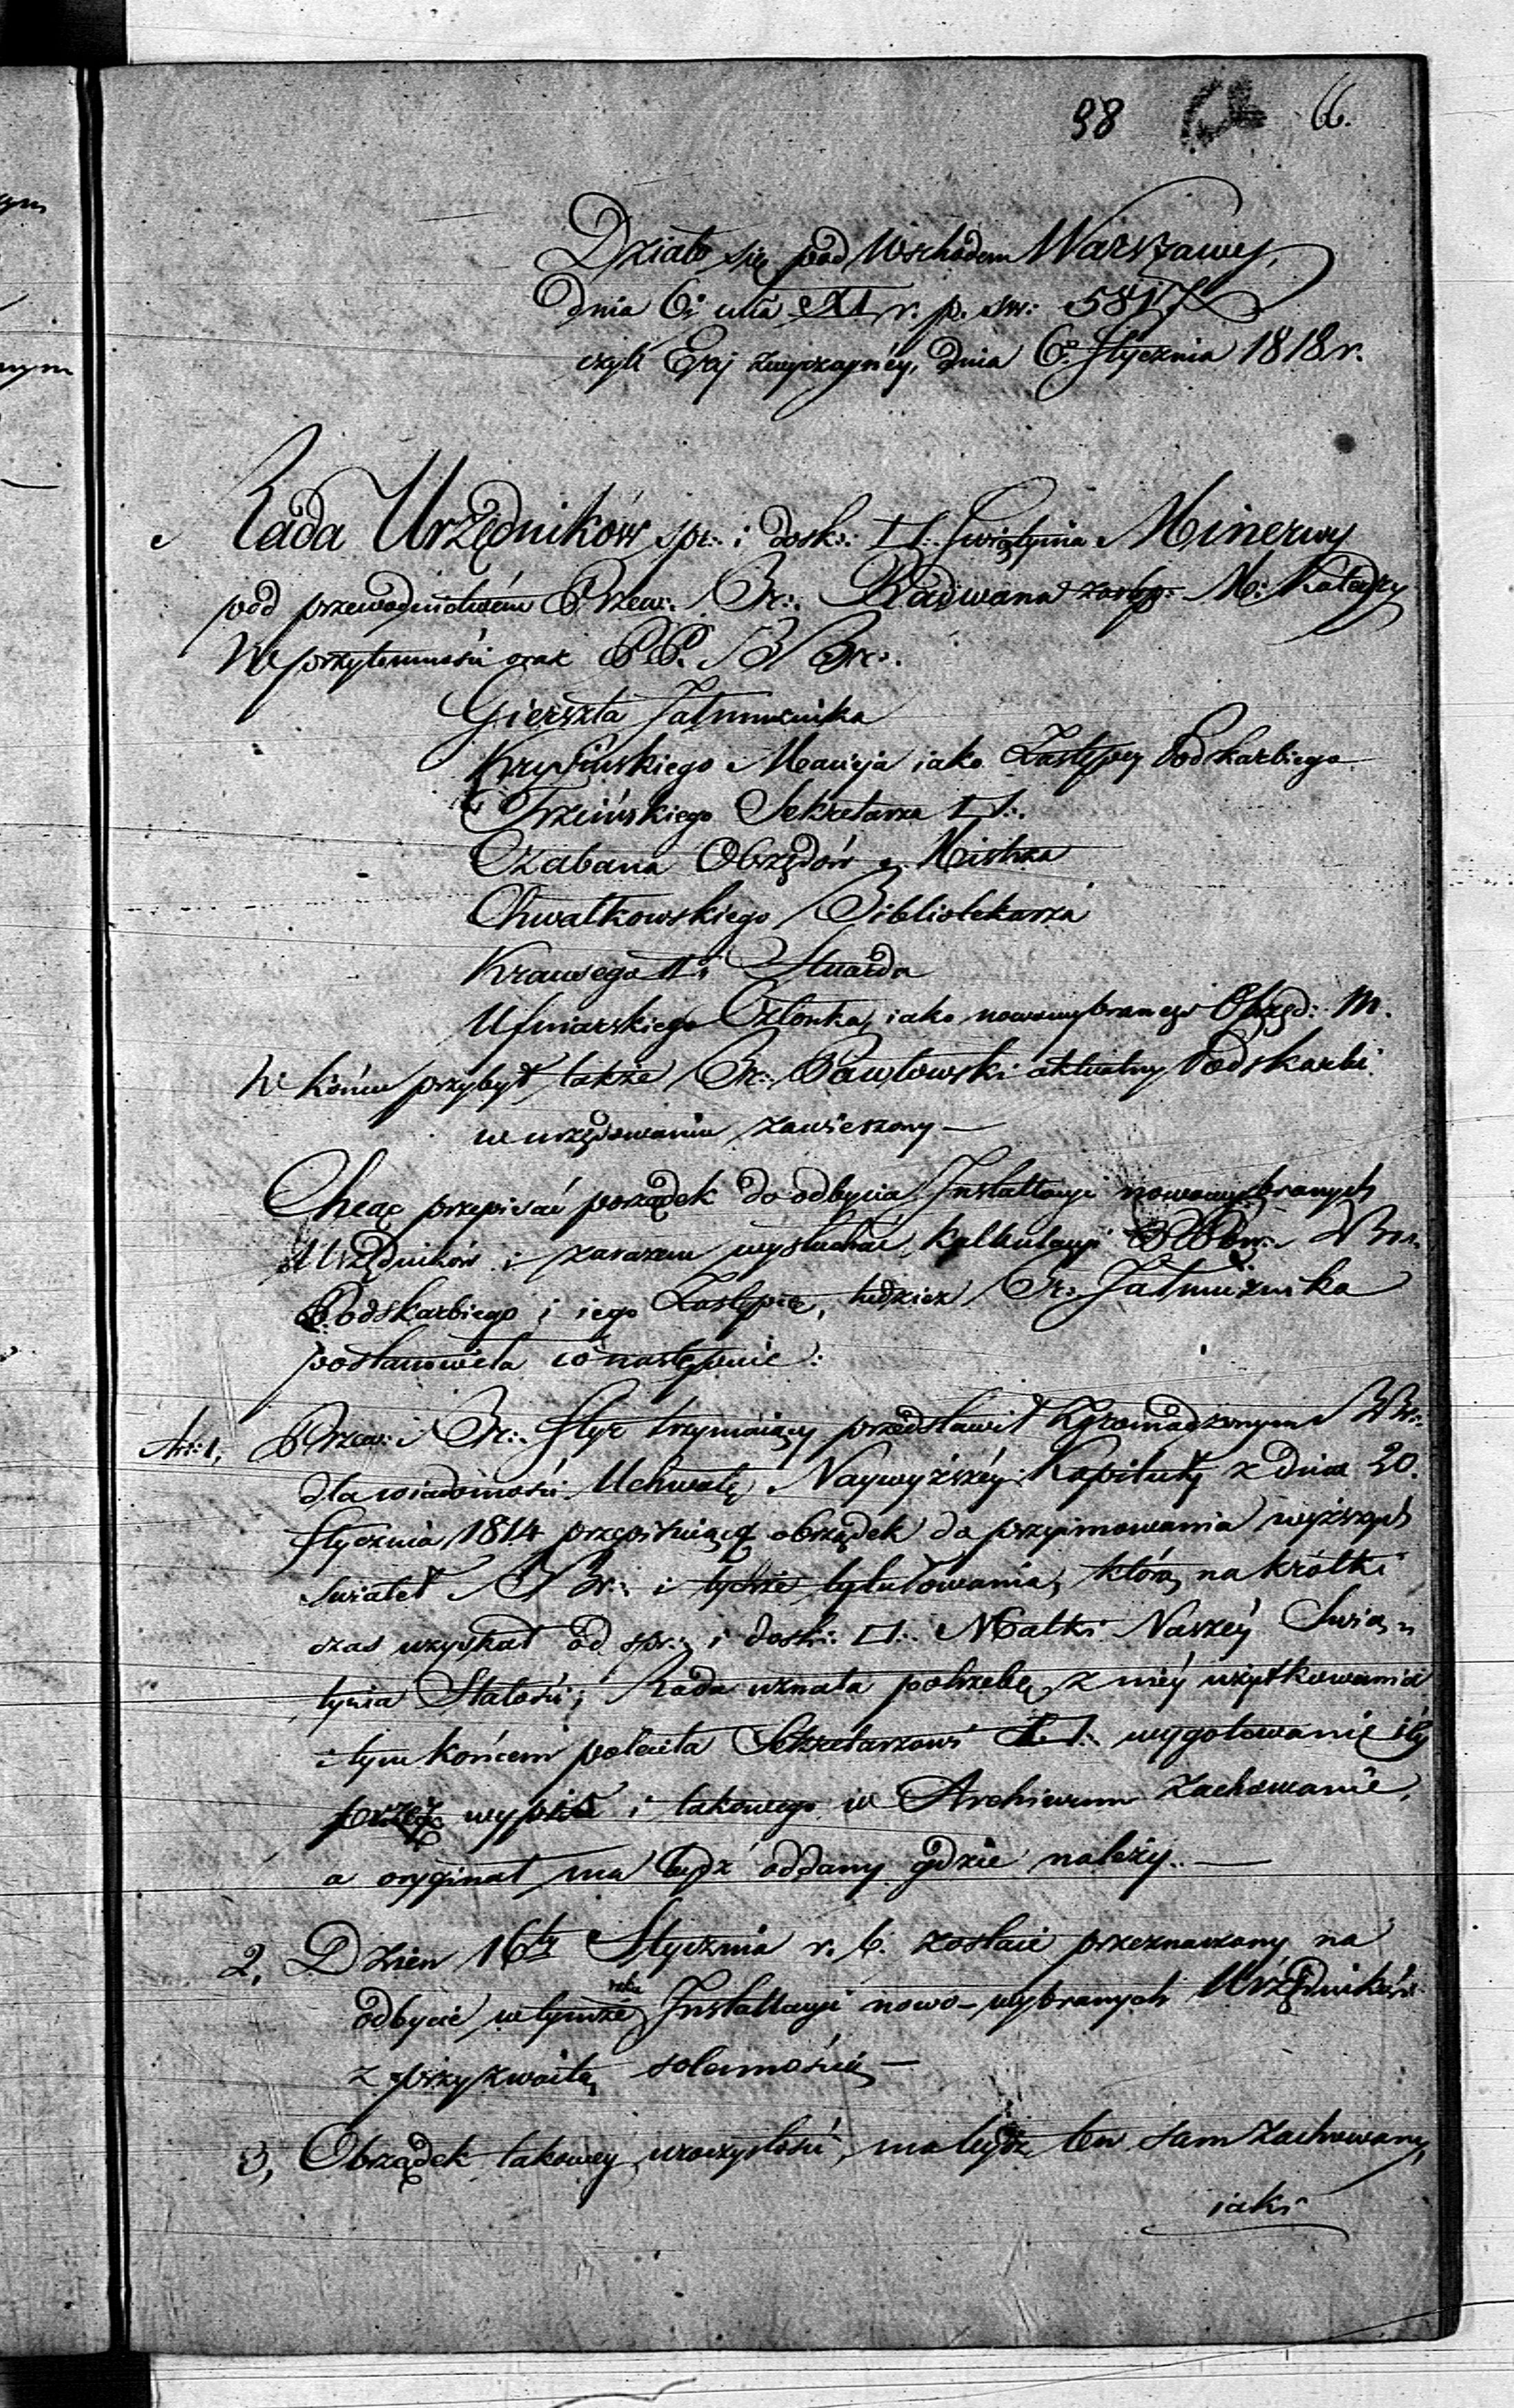 98 66.
Działo się pod Wschodem Warszawy,
dnia 6: XI r. p. św: 5817
czyli Ery zwyczaynéy, dnia 6. Stycznia 1818 r.
Rada Urzędników spr: i dosk: □: Swiątynia Minerwy
pod przewodnictwem Przew: Br: Radwana zastęp: M: Katedry
W przytomności oraz PP. BBr:.
Gierszta Jałmużnika
Macieja iako Zastępcy Podskarbiego
Trzcińskiego Sekretarza □:.
Czabana Obrzędów Mistrza
Chwalkowskiego Bibliotekarza
Krausego II: Stuarda
Ufniarskiego Członka, iako nowowybranego Obrzęd: M.
W końcu przybył także Br: Pawłowski aktualny Podskarbi
w urzędowaniu zawieszony —
Chcąc przepisać porządek do odbycia Installacyi nowowybranych
Urzędników i zarazem wysłuchać Kalkulacyi BBr:
Podskarbiego i iego Zastępcę, tudzież Br: Jałmużnika
postanowiła co następuie:
Art: 1, Przew: Br: Styr trzymaiący przedstawił Zgromadzonym BBr:
dla wiadomości Uchwałę Naywyższéy Kapituły z dnia 20.
Stycznia 1814 przepisuiącą obrządek do przyimowania wyższych
świateł BBr: i tychże tytułowania, którą na krótki
czas uzyskał od spr: i dosk: □: Matki Naszéy Swią„
tynia Stałości; Rada uznała potrzebę z niéy użytkowania
i tym końcem poleciła Sekretarzowi □: wygotowanie iéy
przez wypis i takowego w Archiwum zachowanie,
a oryginał ma bydź oddany gdzie należy. —
2, Dzień 16ty Stycznia r. b. zostaie przeznaczony na
odbycie w tymże roku Installacyi nowo-wybranych Urzędników
z przyzwoitą solennością —
3, Obrządek takowey uroczystości, ma bydź ten sam zachowany,
iaki